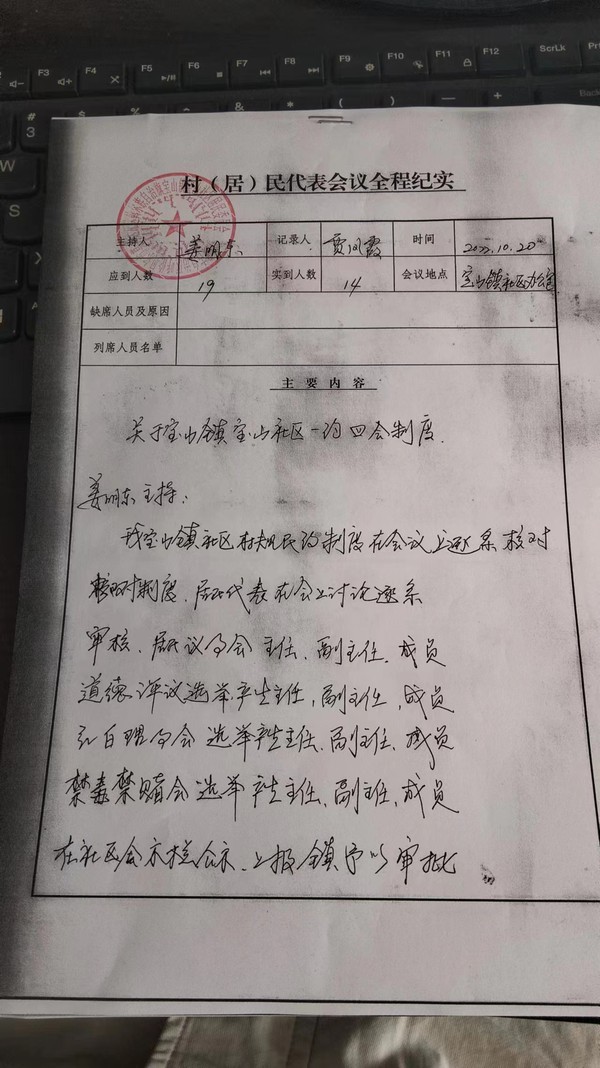 F3 F4 F5 F6 F7 F8 F9 F10 F11 F12 ScrLk
# 3
W
S
村（居）民代表会议全程纪实
主持人 姜明东 记录人 贾凤霞 时间 10.20
应到人数 19 实到人数 14 会议地点 宝山镇社区办公室
缺席人员及原因
列席人员名单
主要内容
关于宝山镇宝山社区一约四会制度.
姜明东主持：
我宝山镇社区村规民约制度在会议上逐条核对
核对制度.居民代表在会上讨论逐条
审核.居民议事会 主任、副主任.成员
道德评议选举产生主任,副主任,成员
红白理事会 选举产生主任、副主任、成员
禁毒禁赌会选举产生主任、副主任、成员
在社区公示栏公示.上报镇予以审批